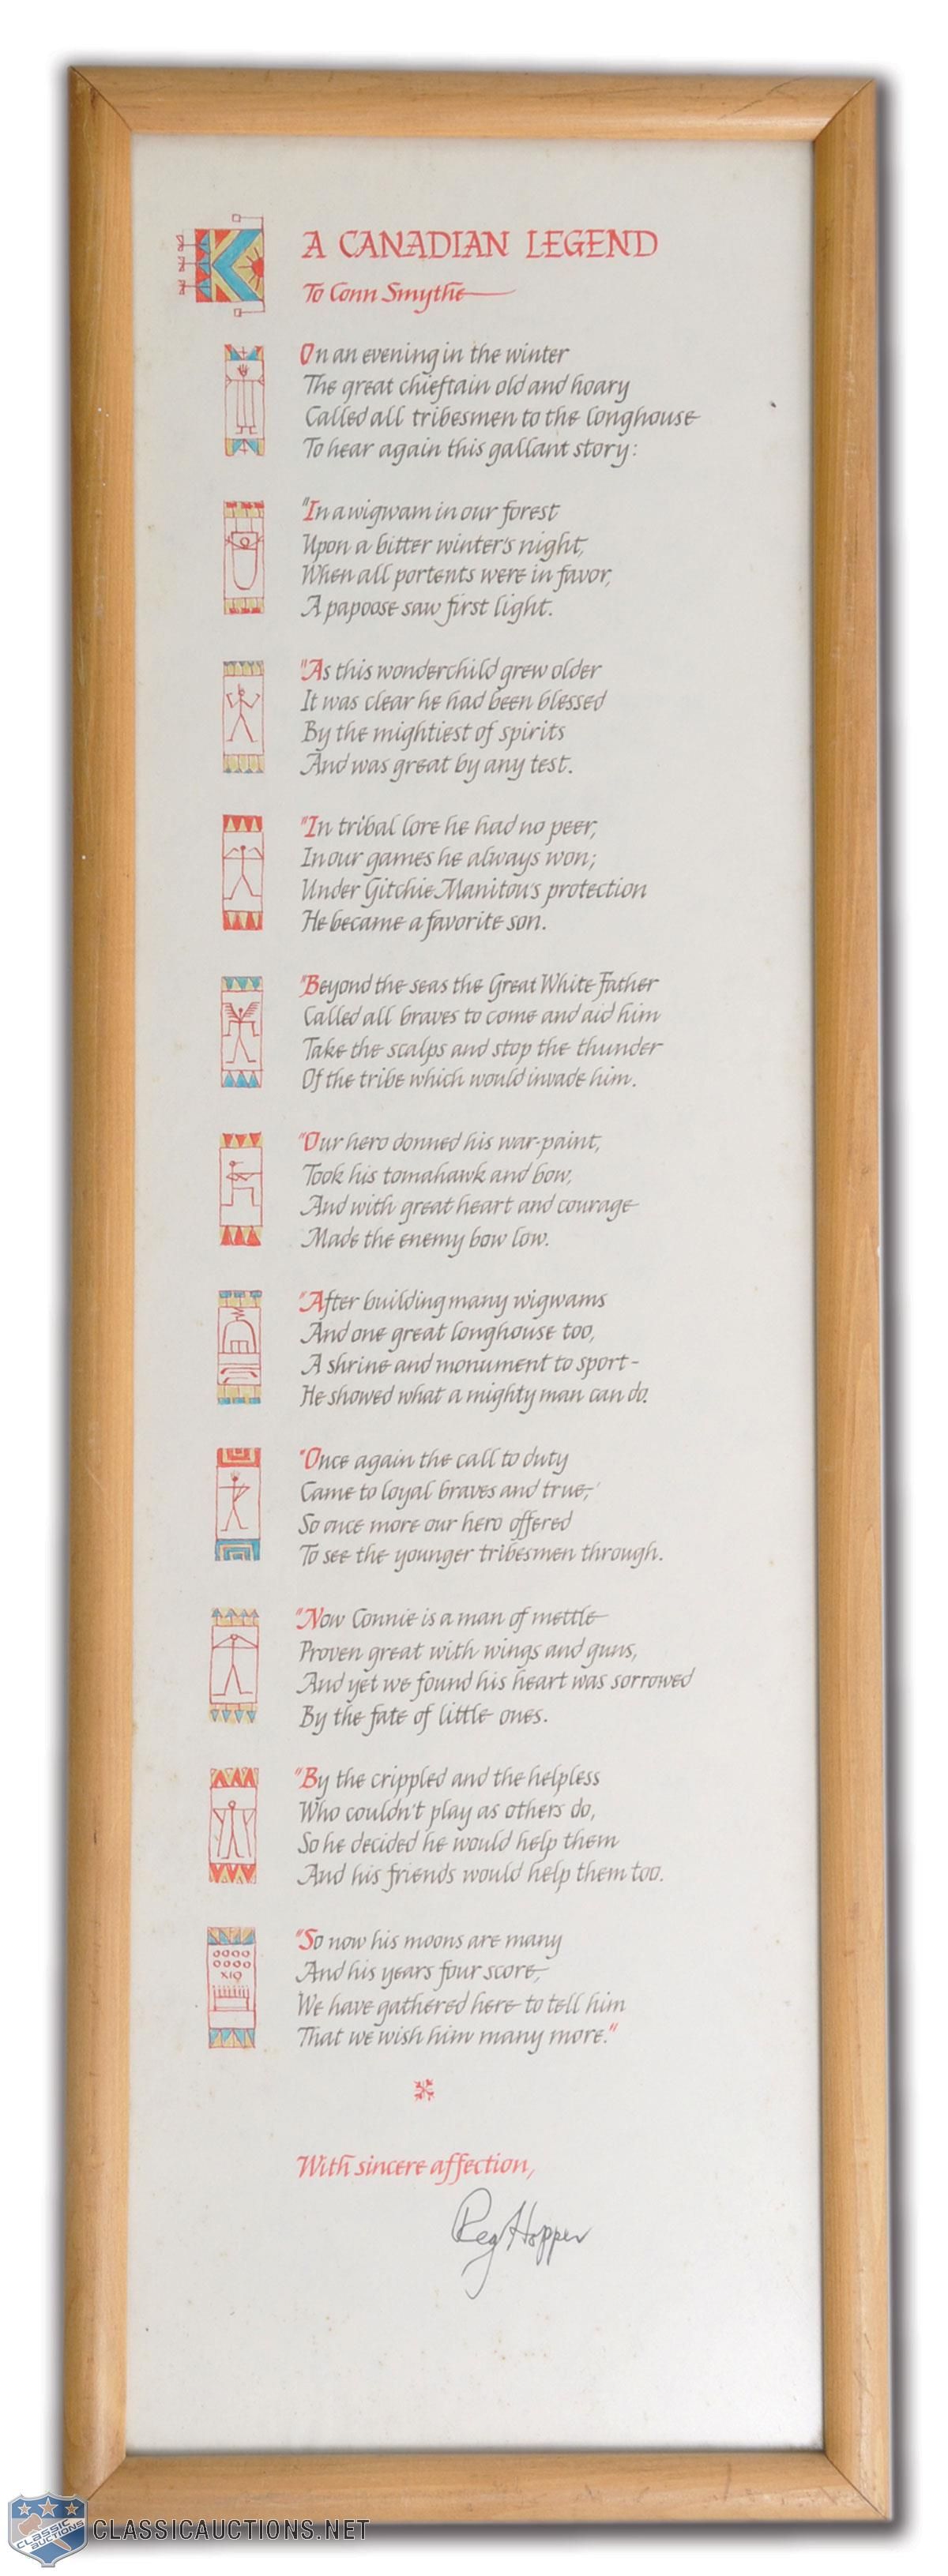 A CANADIAN LEGEND
To Conn Smythe
On an evening in the winter
The great chieftain old and hoary
Called all tribesmen to the longhouse
To hear again this gallant story:
"In a wigwam in our forest
Upon a bitter winter's night,
When all portents were in favor,
A papoose saw first light.
"As this wonderchild grew older
It was clear he had been blessed
By the mightiest of spirits
And was great by any test.
"In tribal lore he had no peer,
In our games he always won;
Under Gitchie Manitou's protection
He became a favorite son.
"Beyond the seas the Great White Father
Called all braves to come and aid him
Take the scalps and stop the thunder
Of the tribe which would invade him.
"Our hero donned his war-paint,
Took his tomahawk and bow,
And with great heart and courage
Made the enemy bow low.
"After building many wigwams
And one great longhouse too,
A shrine and monument to sport-
He showed what a mighty man can do.
"Once again the call to duty
Came to loyal braves and true,
So once more our hero offered
To see the younger tribesmen through.
"Now Connie is a man of mettle
Proven great with wings and guns,
And yet we found his heart was sorrowed
By the fate of little ones.
"By the crippled and the helpless
Who couldn't play as others do,
So he decided he would help them
And his friends would help them too.
X10
"So now his moons are many
And his years four score,
We have gathered here to tell him
That we wish him many more."
With sincere affection,
Reg Hopper
CLASSIC AUCTIONS
CLASSICAUCTIONS.NET